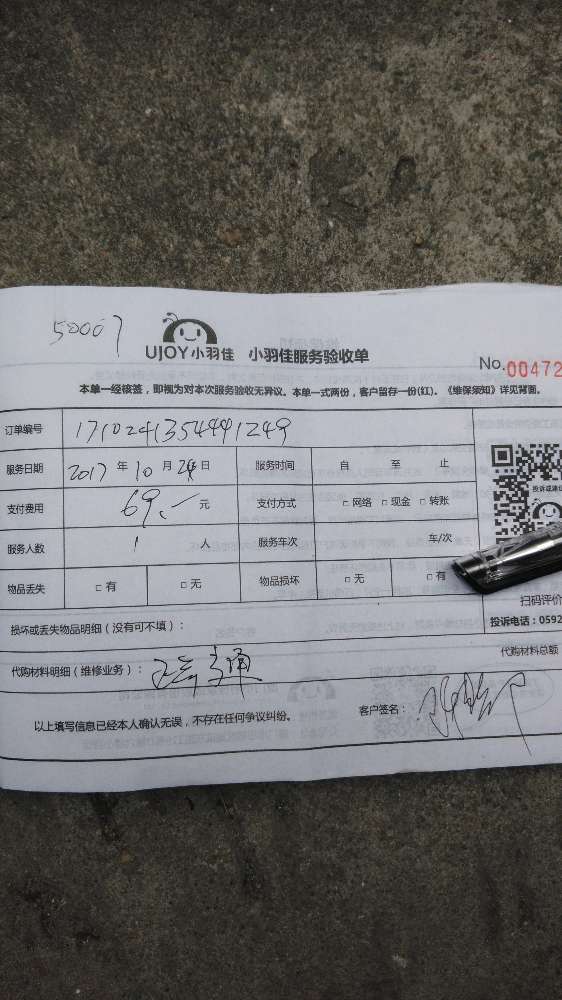 50007
UJOY小羽佳 小羽佳服务验收单
No.00472
本单一经核签，即视为对本次服务验收无异议。本单一式两份，客户留存一份(红)。《维保须知》详见背面。
订单编号 1710241354491249
服务日期 2017 年 10 月 24 日 服务时间 自 至 止
支付费用 69 元 支付方式 □ 网络 □ 现金 □ 转账
投诉或建议
服务人数 1 人 服务车次 车/次
物品丢失 □ 有 □ 无 物品损坏 □ 无 □ 有
扫码评价
损坏或丢失物品明细（没有可不填）：
投诉电话：0592
代购材料明细（维修业务）：
代购材料总额
以上填写信息已经本人确认无误，不存在任何争议纠纷。
客户签名：